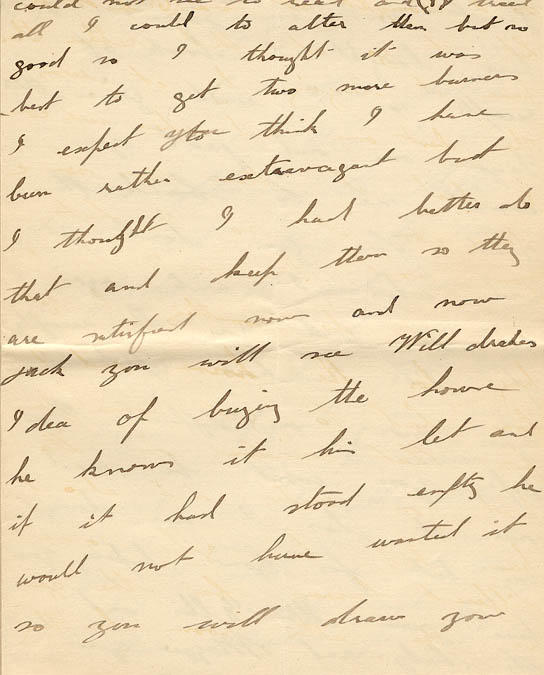 could not see to read and I tried
all I could to alter them but no
good so I thought it was
best to get two more burners
I expect you think I have
been rather extravagant but
I thought I had better do
that and keep them so they
are satisfied now and now
Jack you will see Will drakes
Idea of buying the house
he knows it his let and
if it had stood empty he
would not have wanted it
so you will draw your